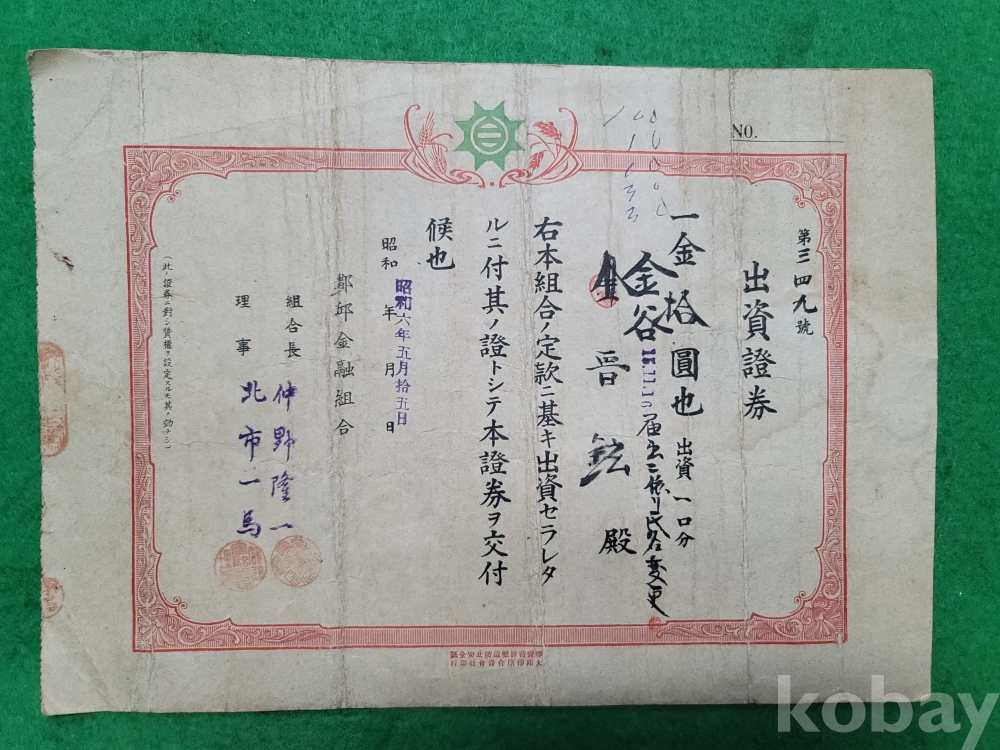 NO.
第三四九號
出資證券
一金拾圓也 出資一口分
15.11.10 届出ニ依リ氏名変更
金谷
晋鉉 殿
右本組合ノ定款ニ基キ出資セラレタ
ルニ付其ノ證トシテ本證券ヲ交付
候也
昭和 年 月 日
昭和六年五月拾五日
鄭邱金融組合
組合長 仲野隆一
理事 北市一馬
(此ノ證券ニ對シ質權ヲ設定スルモ其ノ効ナシ)
kobay